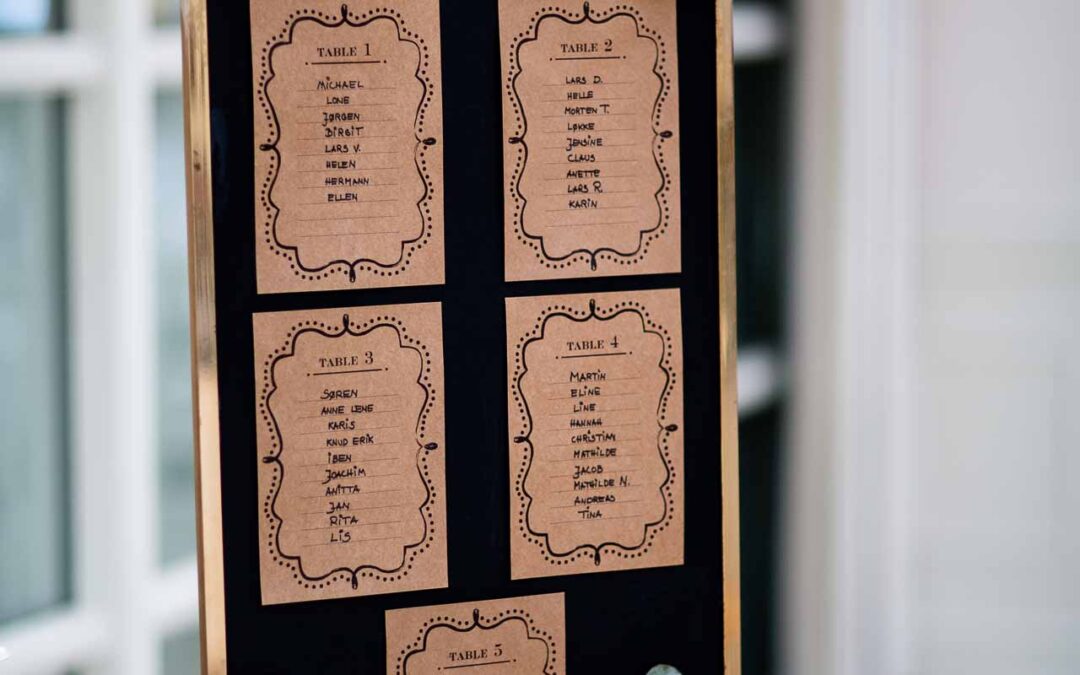 TABLE 1
MICHAEL
LONE
JØRGEN
BIRGIT
LARS V.
HELEN
HERMANN
ELLEN
TABLE 2
LARS D.
HELLE
MORTEN T.
LØKKE
JENSINE
CLAUS
ANETTE
LARS R.
KARIN
TABLE 3
SØREN
ANNE LENE
KARIS
KNUD ERIK
IBEN
JOACHIM
ANITTA
JAN
RITA
LIS
TABLE 4
MARTIN
ELINE
LINE
HANNAH
CHRISTIAN
MATHILDE
JACOB
MATHILDE N.
ANDREAS
TINA
TABLE 5